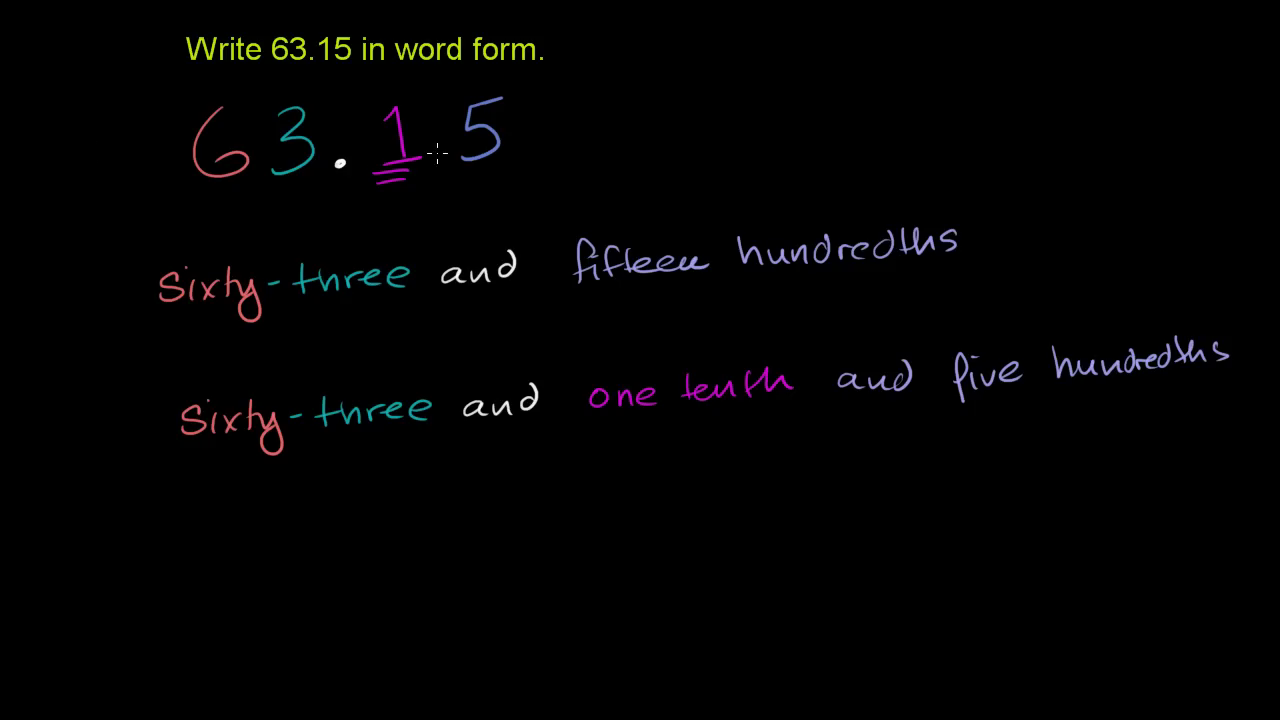 Write 63.15 in word form.
63.15
Sixty-three and fifteen hundredths
Sixty-three and one tenth and five hundredths